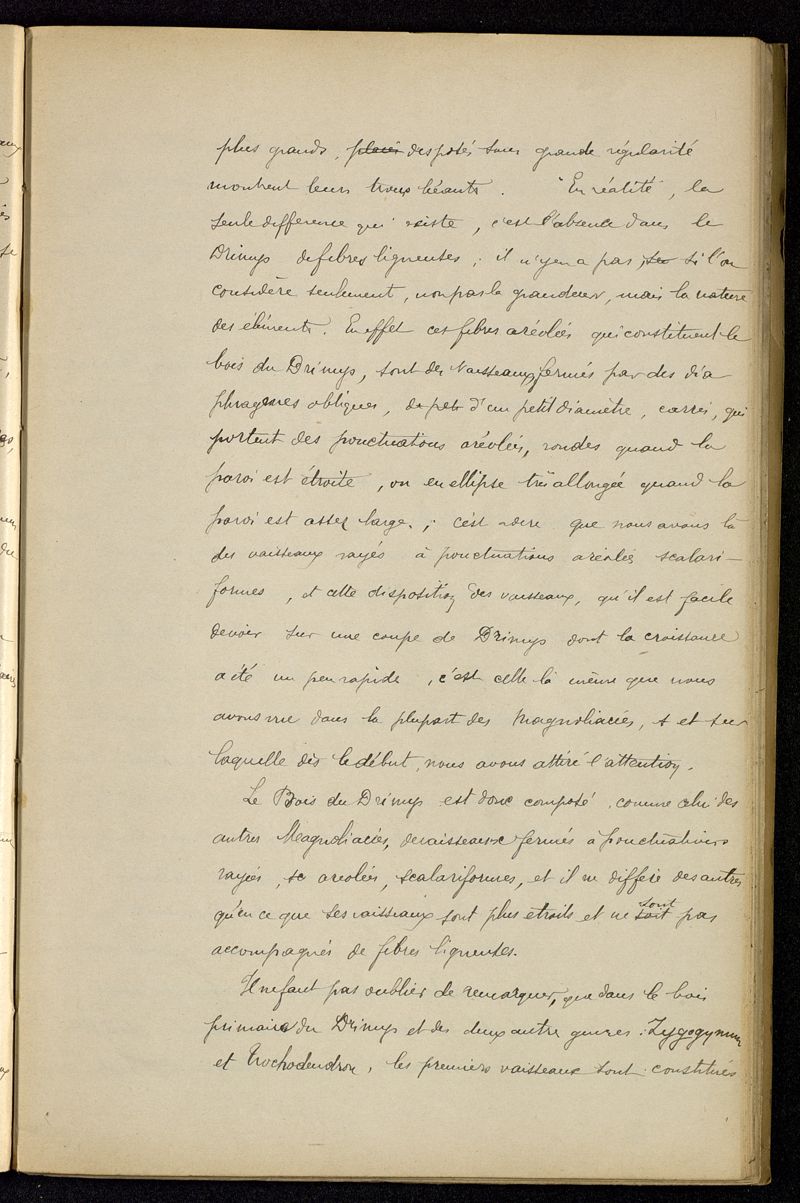 plus grands, placés disposés sans grande régularité
montrent leurs trous béants. "En réalité", la
seule difference qui existe, c'est l'absence dans le
Drimys de fibres ligneuses; il n'y en a pas, si l'on
considère seulement, non pas la grandeur, mais la nature
des éléments. En effet ces fibres aréolées qui constituent le
bois du Drimys, sont des vaisseaux fermés par des dia
phragmes obliques, de pet d'un petit diamètre, carrés, qui
portent des ponctuations aréolées, rondes quand la
paroi est étroite, ou en ellipse très allongée quand la
paroi est assez large,; c'est-a-dire que nous avons là
des vaisseaux rayés à ponctuations aréolées scalari-
formes, et cette disposition des vaisseaux, qu'il est facile
de voir sur une coupe de Drimys dont la croissance
a été un peu rapide, c'est celle là même que nous
avons vue dans la plupart des Magnoliacées, et sur
laquelle dès le début, nous avons attiré l'attention.
Le Bois du Drimys est donc composé, comme celui des
autres Magnoliacées, de vaisseaux fermés à ponctuations
rayées, sc areolées, scalariformes, et il ne differe des autres
qu'en ce que ses vaisseaux sont plus etroits et ne soit sont pas
accompagnés de fibres ligneuses.
Il ne faut pas oublier de remarquer, que dans le bois
primaire du Drimys et des deux autre genres: Zygogynum
et Trochodendron, les premiers vaisseaux sont constitués